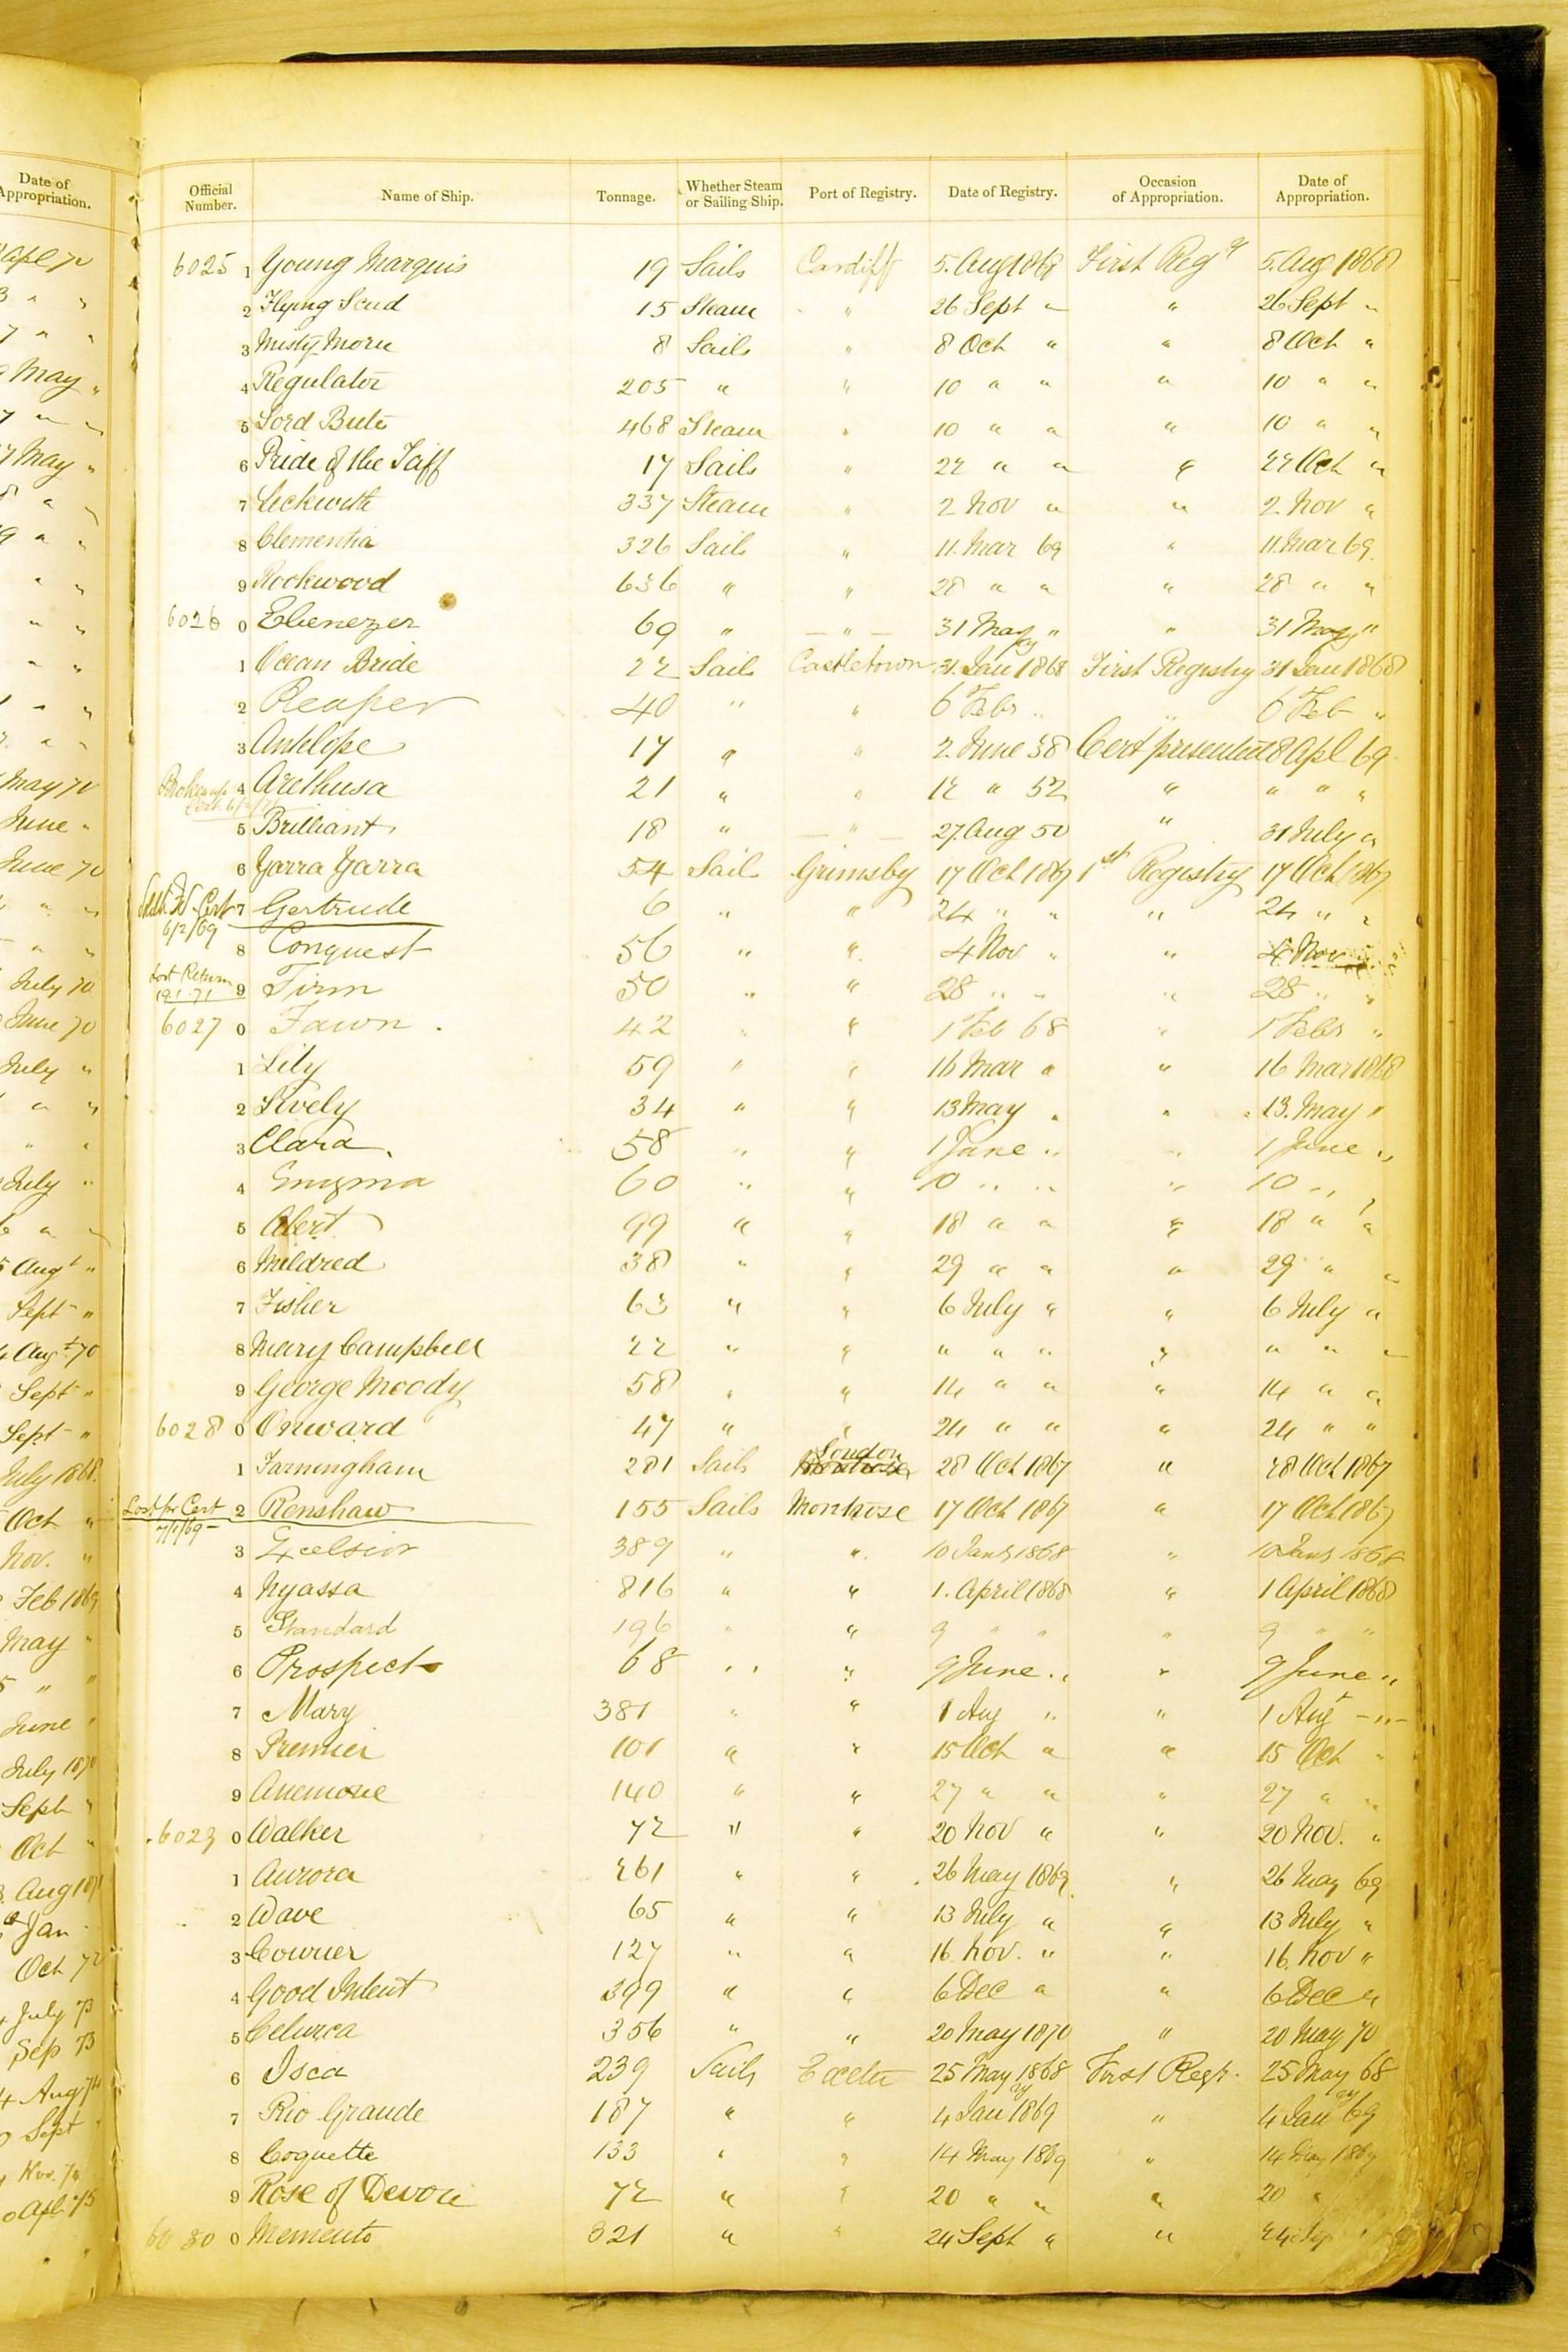 Date of Appropriation.
Official Number. Name of Ship. Tonnage. Whether Steam or Sailing Ship. Port of Registry. Date of Registry. Occasion of Appropriation. Date of Appropriation.
6025 1 Young Marquis 19 Sails Cardiff 5. Aug 1868 First Regy 5. Aug 1868
2 Flying Scud 15 Steam " 26 Sept " " 26 Sept "
3 Misty Morn 8 Sails " 8 Oct " " 8 Oct "
4 Regulator 205 " " 10 " " " 10 " "
5 Lord Bute 468 Steam " 10 " " " 10 " "
6 Pride of the Taff 17 Sails " 22 " " " 22 Oct "
7 Leckwith 337 Steam " 2 Nov " " 2. Nov "
8 Clementia 326 Sails " 11. Mar 69 " 11. Mar 69.
9 Rookwood 636 " " 28 " " " 28 " "
6026 0 Ebenezer 69 " " 31 May " " 31 May "
1 Ocean Bride 22 Sails Castletown 31 Jany 1868 First Registry 31 Jan 1868
2 Reaper 40 " " 6 Feby " " 6 Feb "
3 Antelope 17 " " 2. June 38 Cert presented 8 Apl 69
4 Arethusa 21 " " 12 " 52 " " " "
5 Brilliant 18 " " 27. Aug 50 " 31 July "
6 Yarra Yarra 54 Sails Grimsby 17 Oct 1867 1st Registry 17 Oct 1867
7 Gertrude 6 " " 24 " " " 24 " "
6/2/69
8 Conquest 56 " " 4 Nov " " 4 Nov "
Lost Return 9 Firm 50 " " 28 " " " 28 " "
12.1.71
6027 0 Fawn 42 " " 1 Feb 68 " 1 Feby "
1 Lily 59 " " 16 Mar " " 16 Mar 1868
2 Lively 34 " " 13 May " " 13. May "
3 Clara 58 " " 1 June " " 1 June "
4 Enigma 60 " " 10 " " " 10 " "
5 Alert 99 " " 18 " " " 18 " "
6 Mildred 38 " " 29 " " " 29 " "
7 Fisher 63 " " 6 July " " 6 July "
8 Mary Campbell 22 " " " " " " " " "
9 George Moody 58 " " 14 " " " 14 " "
6028 0 Onward 47 " " 24 " " " 24 " "
1 Farningham 281 Sails London 28 Oct 1867 " 28 Oct 1867
Lost pr Cert 2 Renshaw 155 Sails Montrose 17 Oct 1867 " 17 Oct 1867
7/1/69
3 Excelsior 389 " " 10 Jany 1868 " 10 Jany 1868
4 Nyassa 816 " " 1. April 1868 " 1 April 1868
5 Standard 196 " " 9 " " " 9 " "
6 Prospect 68 " " 9 June " " 9 June "
7 Mary 381 " " 1 Aug " " 1 Augt "
8 Premier 101 " " 15 Oct " " 15 Oct "
9 Anemone 140 " " 27 " " " 27 " "
6029 0 Walker 72 " " 20 Nov " " 20 Nov. "
1 Aurora 261 " " 26 May 1869 " 26 May 69
2 Wave 65 " " 13 July " " 13 July "
3 Courier 127 " " 16. Nov. " " 16. Nov "
4 Good Intent 399 " " 6 Dec " " 6 Dec "
5 Celurca 356 " " 20 May 1870 " 20 May 70
6 Isca 239 Sails Exeter 25 May 1868 First Regy. 25 May 68
7 Rio Grande 187 " " 4 Jany 1869 " 4 Jany 69
8 Coquette 133 " " 14 May 1869 " 14 May 1869
9 Rose of Devon 72 " " 20 " " " 20 "
6030 0 Memento 321 " " 24 Sept " " 24 Sep